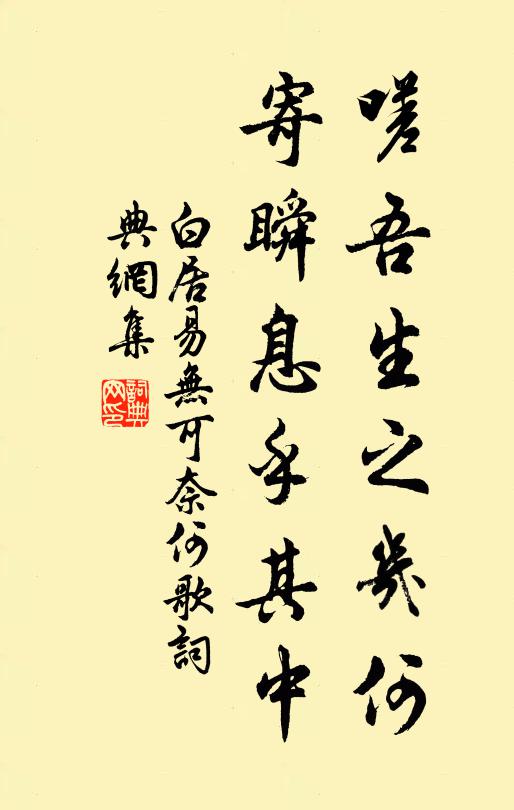 嗟吾生之幾何
寄瞬息乎其中
白居易無可奈何歌詞
典網集
詞典網印